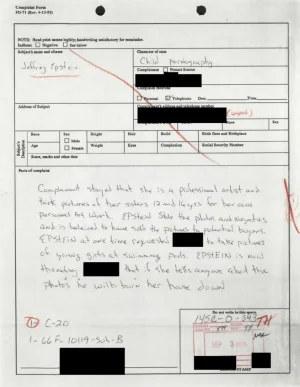 Complaint Form
FD-71 (Rev. 4-13-91)
NOTE: Hand print names legibly; handwriting satisfactory for remainder.
Indices: Negative See below
Subject's name and aliases
Character of case
Jeffrey Epstein
Child pornography
Complainant Protect Source
Complaint received
Personal Telephonic Date Time
Address of Subject
Complainant's address and telephone number
Subject's Description
Race Sex Height Hair Build Birth Date and Birthplace
Male
Age Female Weight Eyes Complexion Social Security Number
Scars, marks and other data
Facts of complaint
Complainant stated that she is a professional artist and
took pictures of her sisters 12 and 16 yrs for her own
personal art work. EPStein Stole the photos and negatives
and is believed to have sold the pictures to potential buyers.
EPSTEIN at one time requested to take pictures
of young girls at swimming pools. EPSTEIN is now
that if she tells anyone about the
photos he will burn her house down
C-20
Do not write in this space.